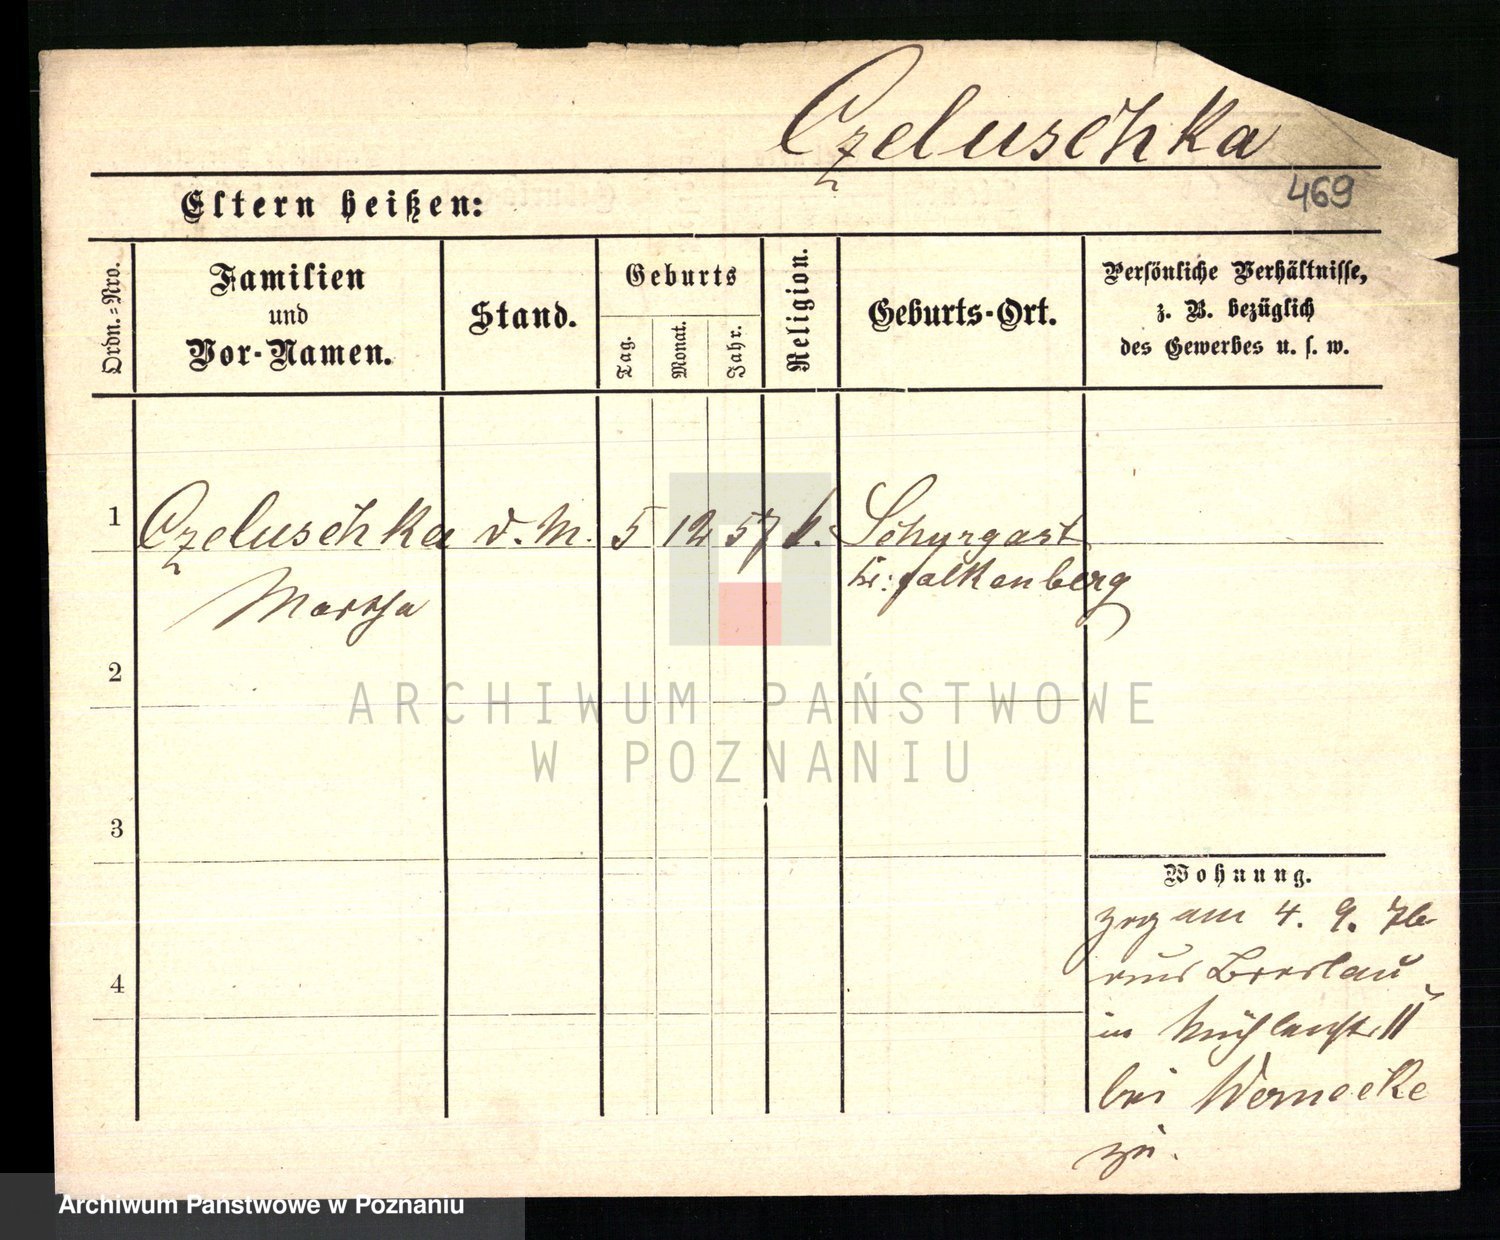 Czeluschka
469
Eltern heißen:
Ordn.-Nro.
Familien
und
Vor-Namen.
Stand.
Geburts
Tag.
Monat.
Jahr.
Religion.
Geburts-Ort.
Persönliche Verhältnisse,
z. B. bezüglich
des Gewerbes u. s. w.
1
Czeluschka
5
12
57
k.
Schurgast
Kr: Falkenberg
Martha
2
3
4
Wohnung.
zog am 4. 9. 76
aus Breslau
in Mühlenstr 11
bei Wernecke
zu.
ARCHIWUM PAŃSTWOWE
W POZNANIU
Archiwum Państwowe w Poznaniu